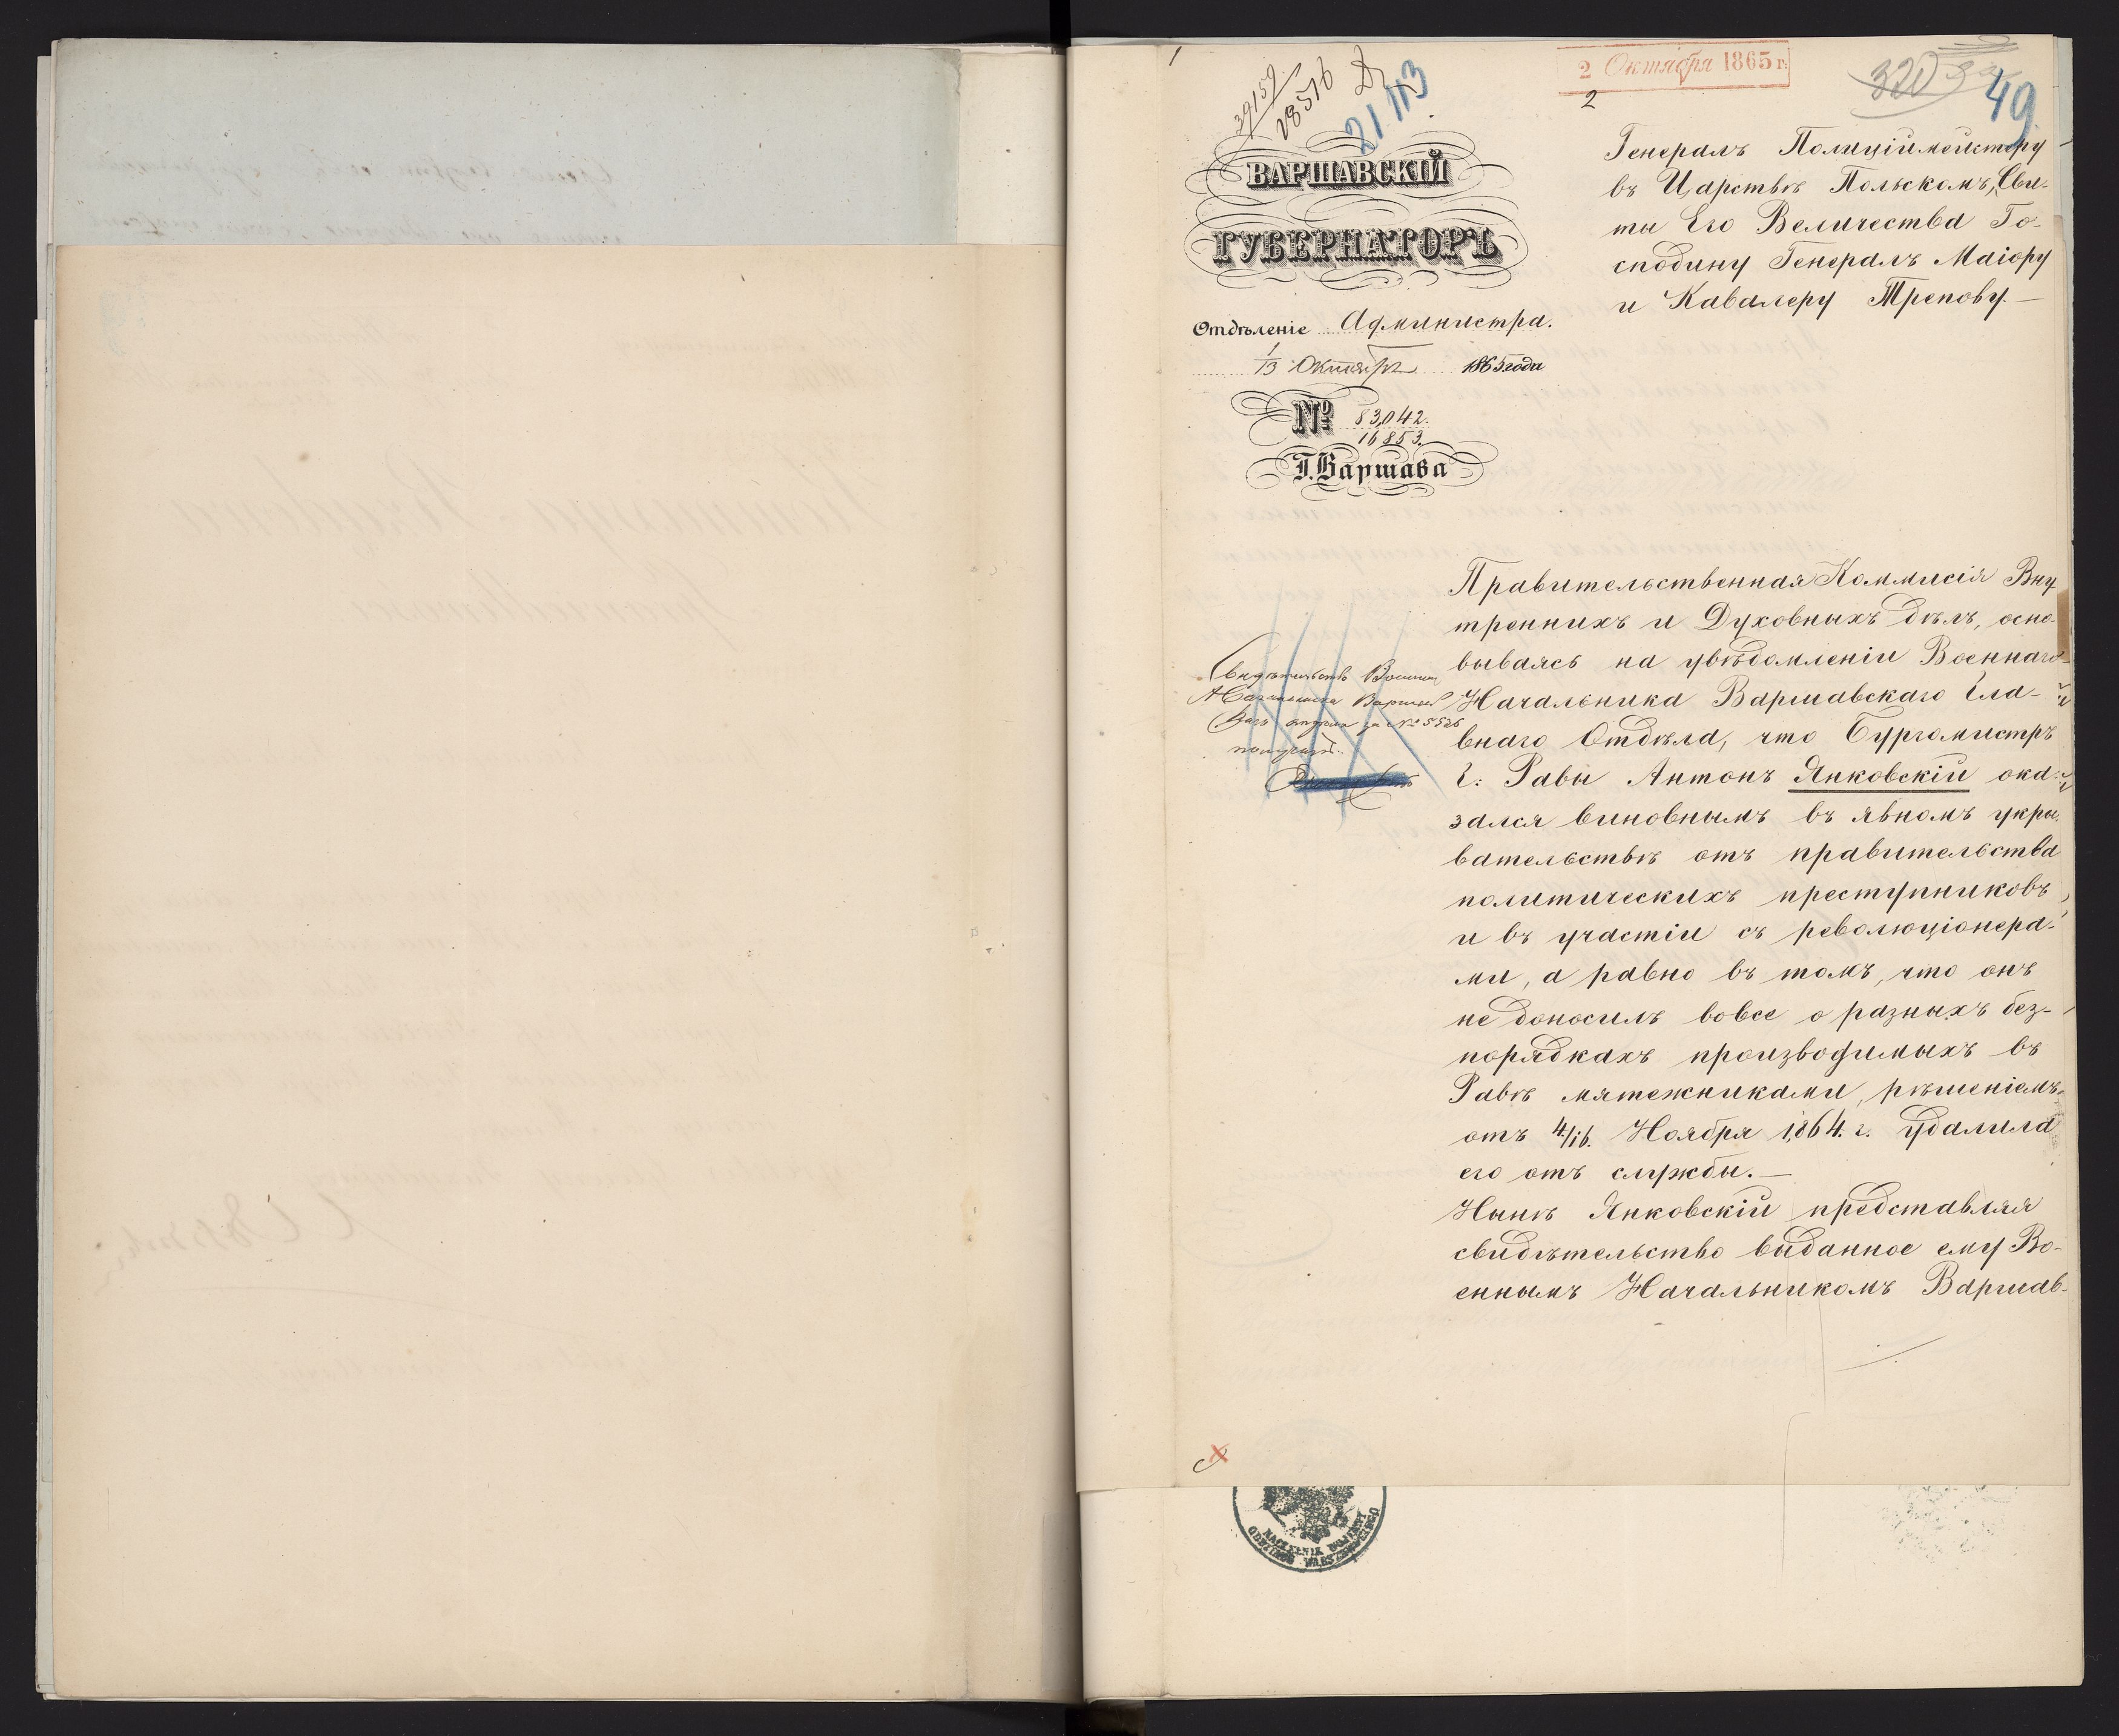 39157
28516
21113
2 Октября 1865 г.
2
320
49
ВАРШАВСКІЙ
ГУБЕРНАТОРЪ
Отдѣленіе Администра.
1/13 Октября 1865 года
№ 83,042.
16853.
Г. Варшава
Генералъ Полиціймейстеру
въ Царствѣ Польскомъ, Сви-
ты Его Величества Го-
сподину Генералъ Маіору
и Кавалеру Трепову.—
Правительственная Коммисія Вну-
тренних и Духовныхъ дѣлъ, осно-
вываясь на увѣдомленіи Военнаго
Начальника Варшавскаго Гла-
внаго Отдѣла, что Бургомистръ
Г: Равы Антонъ Янковскій ока-
зался виновнымъ въ явномъ укры-
вательствѣ отъ правительства
политическихъ преступниковъ
и въ участіи съ революціонера-
ми, а равно въ томъ, что онъ
не доносилъ вовсе о разныхъ без-
порядкахъ производимыхъ въ
Равѣ мятежниками, рѣшеніемъ
отъ 4/16. Ноября 1864. г. удалила
его отъ службы.—
Нынѣ Янковскій представляя
свидѣтельство выданное ему Во-
еннымъ Начальникомъ Варшав-
Начальника Варшав
за № 5526
получилъ
NACZELNIK WOJENNY
ODDZIAŁU WARSZAWSKIEGO